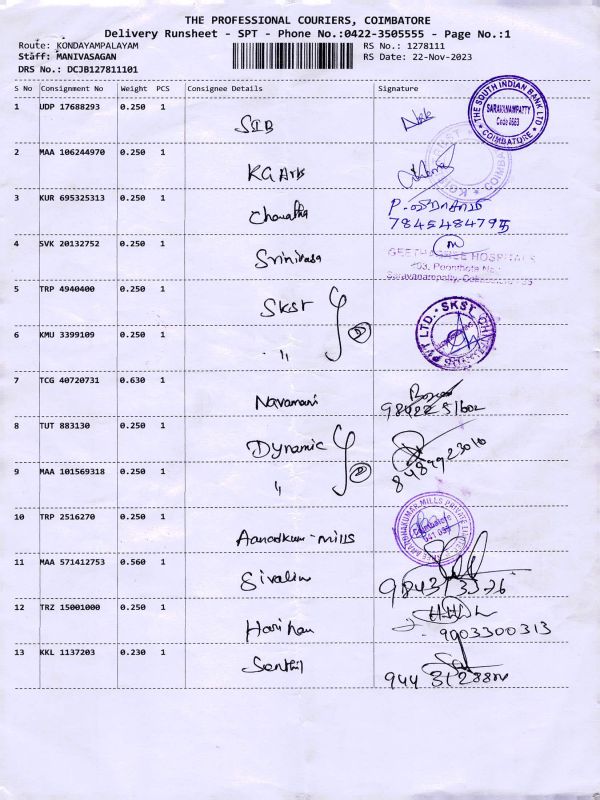 THE PROFESSIONAL COURIERS, COIMBATORE
Delivery Runsheet - SPT - Phone No.:0422-3505555 - Page No.:1
Route: KONDAYAMPALAYAM RS No.: 1278111
Staff: MANIVASAGAN RS Date: 22-Nov-2023
DRS No.: DCJB127811101
S No Consignment No Weight PCS Consignee Details Signature
1 UDP 17688293 0.250 1
SIB
THE SOUTH INDIAN BANK LTD
SARAVANAMPATTY
COIMBATORE
2 MAA 106244970 0.250 1
KG Arts
3 KUR 695325313 0.250 1
4 SVK 20132752 0.250 1
Srinivasa
GEETHASREE HOSPITALS
5 TRP 4940400 0.250 1
SKST
6 KMU 3399109 0.250 1
"
PVT LTD. SKST
7 TCG 40720731 0.630 1
Navamani
8 TUT 883130 0.250 1
Dynamic
8489923010
9 MAA 101569318 0.250 1
"
10 TRP 2516270 0.250 1
mills
11 MAA 571412753 0.560 1
12 TRZ 15001000 0.250 1
9003300313
13 KKL 1137203 0.230 1
Senthil